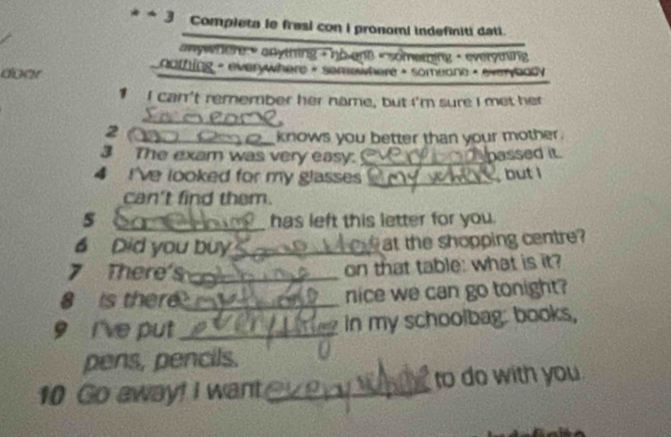 * * 3 Completa le frasi con i pronomi indefiniti dati.
anywhere • anything • no one • something • everything
nothing • everywhere • somewhere • someone • everybody
1 I can't remember her name, but I'm sure I met her
someome.
2 knows you better than your mother.
3 The exam was very easy: everybody passed it.
4 I've looked for my glasses any where, but I
can't find them.
5 Something has left this letter for you.
6 Did you buy at the shopping centre?
7 There's on that table: what is it?
8 Is there nice we can go tonight?
9 I've put everything in my schoolbag: books,
pens, pencils.
10 Go away! I want every to do with you.